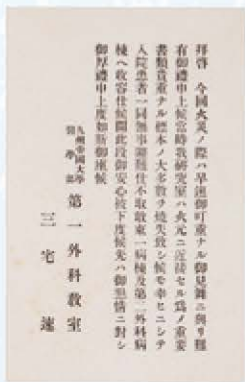 拜啓　今囘火災ノ際ハ早速御叮重ナル御見舞ニ與リ難
有御禮申上候當時我硏究室ハ火元ニ近接セル爲ノ重要
書類貴重ナル標本ノ大多數ヲ燒失致シ候モ幸ヒニシテ
入院患者一同無事避難仕不取敢東一病棟及第二外科病
棟ヘ收容仕候間此段御安心被下度候先ハ御懇情ニ對シ
御厚禮申上度如斯御座候
九州帝國大學
醫學部
第一外科敎室
三宅速